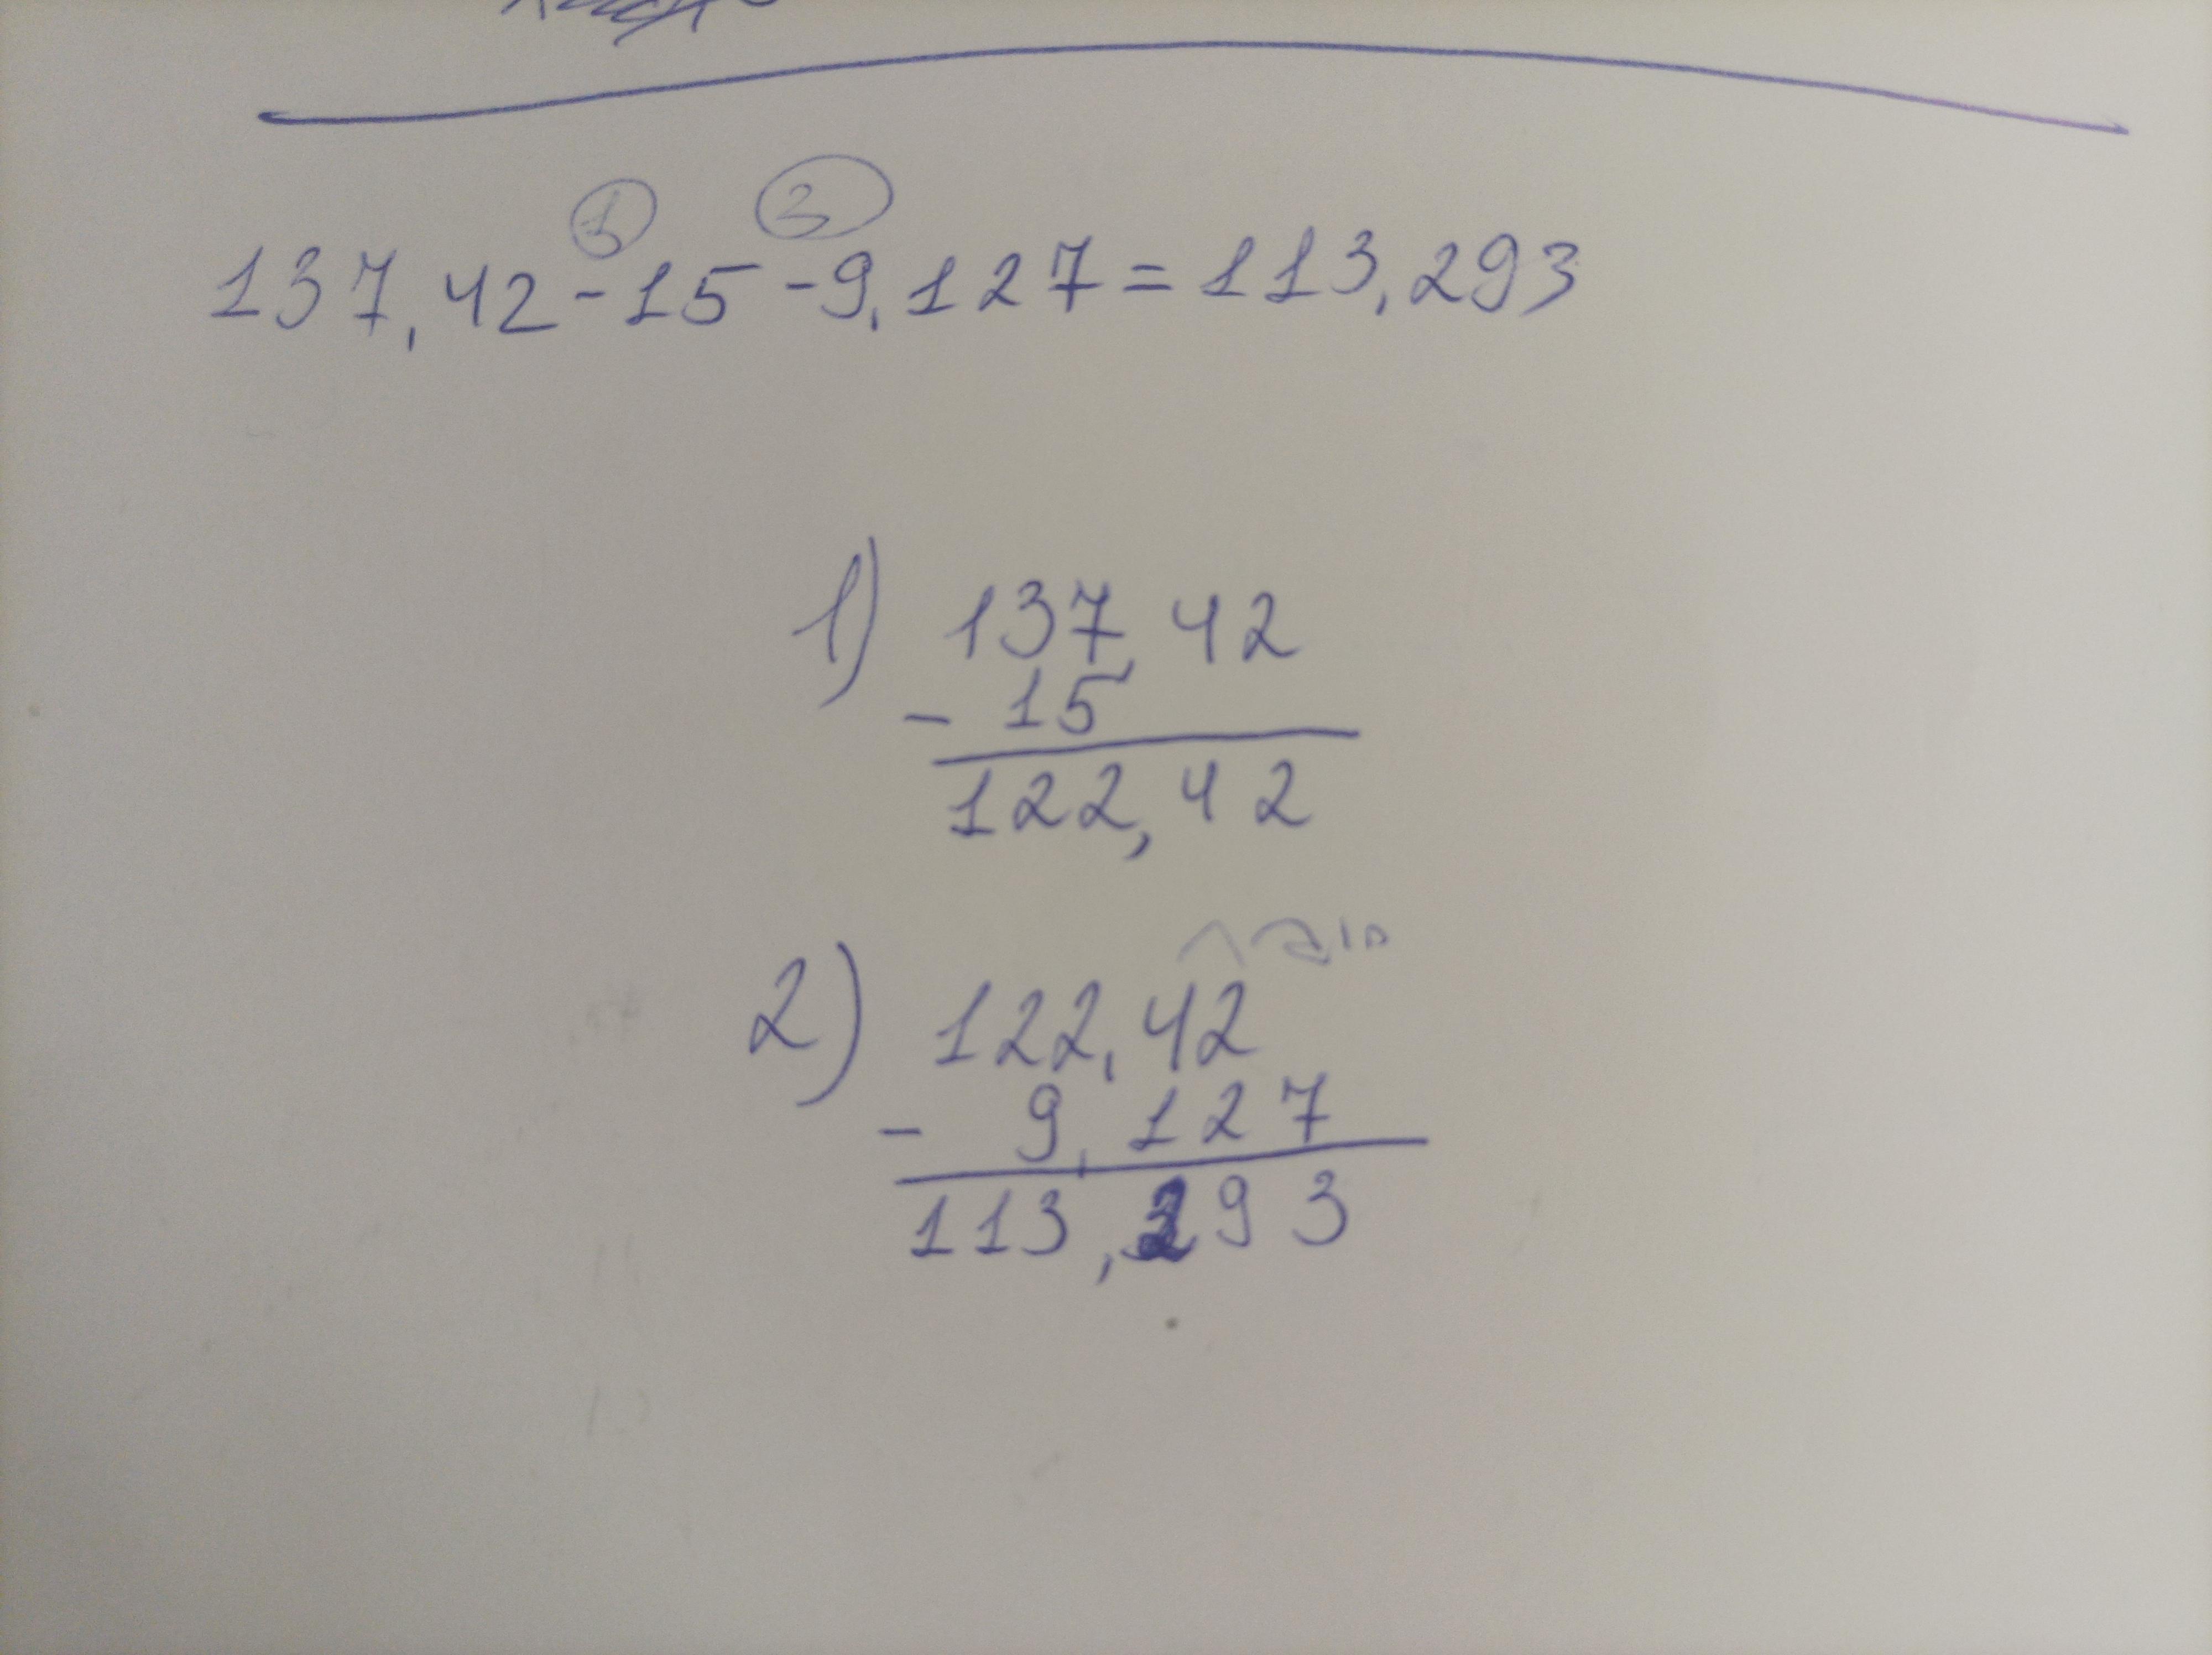 ① ②
137,42-15-9,127=113,293
1) 137,42
- 15
122,42
10
2) 122,42
- 9,127
113,293